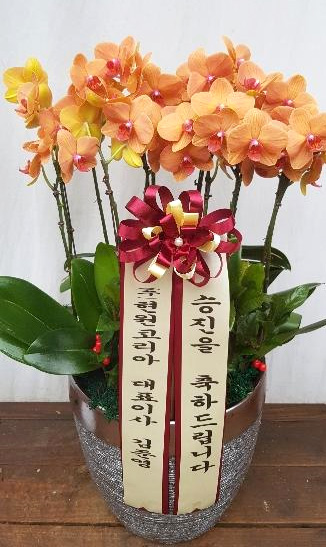 승진을 축하드립니다
㈜현원코리아 대표이사 김준영